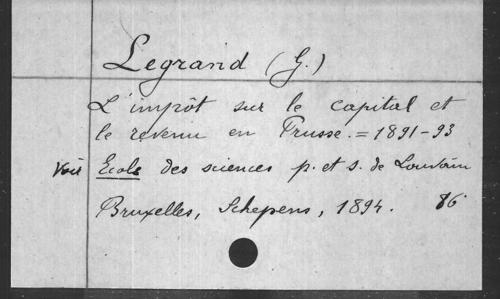 Legrand (G.)
L'impôt sur le capital et
le revenu en Prusse. = 1891-93
Voir Ecole des sciences p. et s. de Louvain
Bruxelles, Schepens, 1894. 86